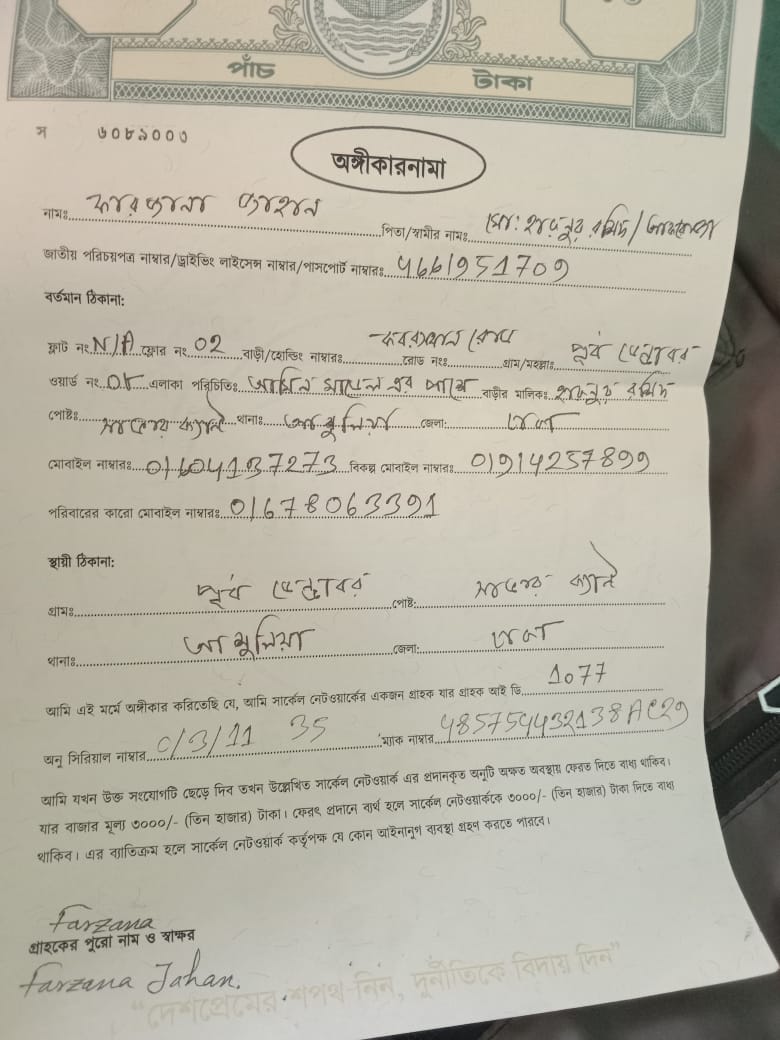 পাঁচ টাকা
স ৬০৮৯০০০
অঙ্গীকারনামা
নামঃ ফারজানা জাহান পিতা/স্বামীর নামঃ মো: হারুনুর রশিদ/
জাতীয় পরিচয়পত্র নাম্বার/ড্রাইভিং লাইসেন্স নাম্বার/পাসপোর্ট নাম্বারঃ 4661951709
বর্তমান ঠিকানা:
ফ্লাট নং N/A ফ্লোর নং 02 বাড়ী/হোল্ডিং নাম্বারঃ রোড নংঃ কবরস্থান রোড গ্রাম/মহল্লাঃ পূর্ব
ওয়ার্ড নং 08 এলাকা পরিচিতিঃ এর পাশে বাড়ীর মালিকঃ হারুনুর রশিদ
পোষ্টঃ থানাঃ আশুলিয়া জেলা: ঢাকা
মোবাইল নাম্বারঃ 01604137273 বিকল্প মোবাইল নাম্বারঃ 01914257899
পরিবারের কারো মোবাইল নাম্বারঃ 01678063391
স্থায়ী ঠিকানা:
গ্রামঃ পূর্ব পোষ্ট:
থানাঃ আশুলিয়া জেলা: ঢাকা
আমি এই মর্মে অঙ্গীকার করিতেছি যে, আমি সার্কেল নেটওয়ার্কের একজন গ্রাহক যার গ্রাহক আই ডি 1077
অনু সিরিয়াল নাম্বার 0/3/11 35 ম্যাক নাম্বার 485754432138AC29
আমি যখন উক্ত সংযোগটি ছেড়ে দিব তখন উল্লেখিত সার্কেল নেটওয়ার্ক এর প্রদানকৃত অনুটি অক্ষত অবস্থায় ফেরত দিতে বাধ্য থাকিব।
যার বাজার মূল্য ৩০০০/- (তিন হাজার) টাকা। ফেরৎ প্রদানে ব্যর্থ হলে সার্কেল নেটওয়ার্ককে ৩০০০/- (তিন হাজার) টাকা দিতে বাধ্য
থাকিব। এর ব্যতিক্রম হলে সার্কেল নেটওয়ার্ক কর্তৃপক্ষ যে কোন আইনানুগ ব্যবস্থা গ্রহণ করতে পারবে।
Farzana
গ্রাহকের পুরো নাম ও স্বাক্ষর
Farzana Jahan.
"দেশপ্রেমের শপথ নিন, দুর্নীতিকে বিদায় দিন"